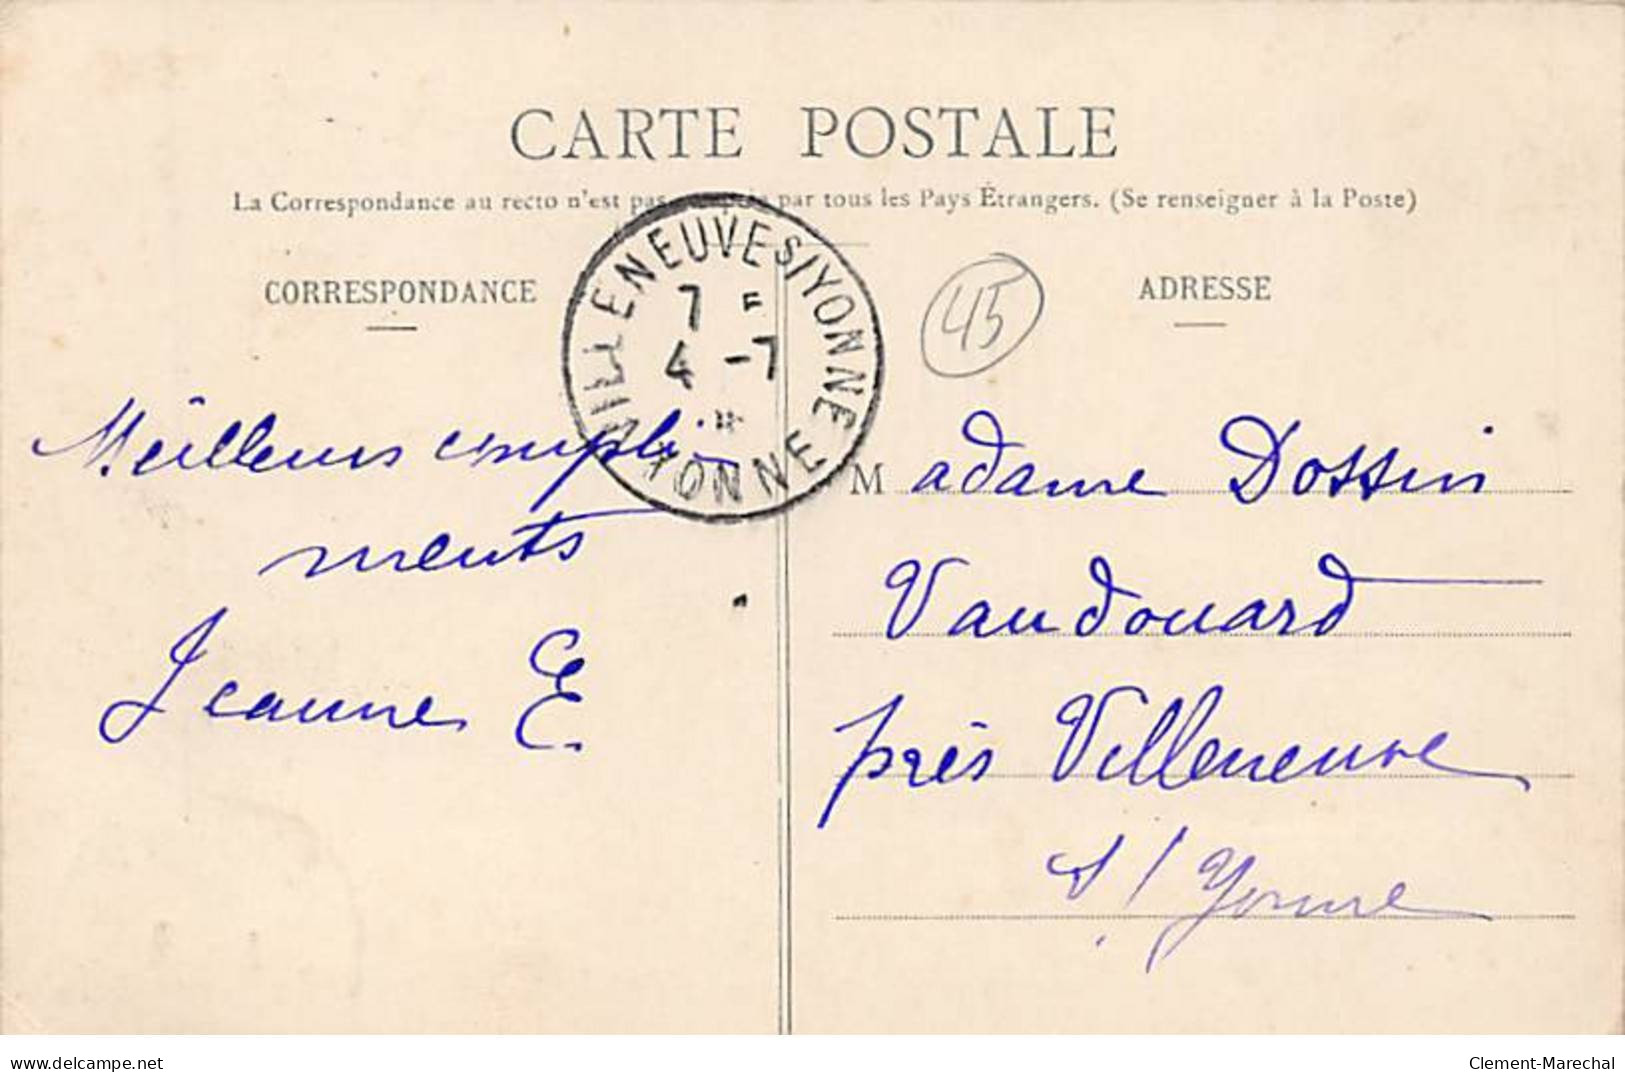 CARTE POSTALE
La Correspondance au recto n'est pas par tous les Pays Étrangers. (Se renseigner à la Poste)
CORRESPONDANCE
ADRESSE
VILLENEUVE S/YONNE
7
4 -7
YONNE
45
Meilleurs compli-
ments
Jeanne E.
Madame Dossin
Vaudouard
près Villeneuve
s/Yonne
www.delcampe.net
Clement-Marechal